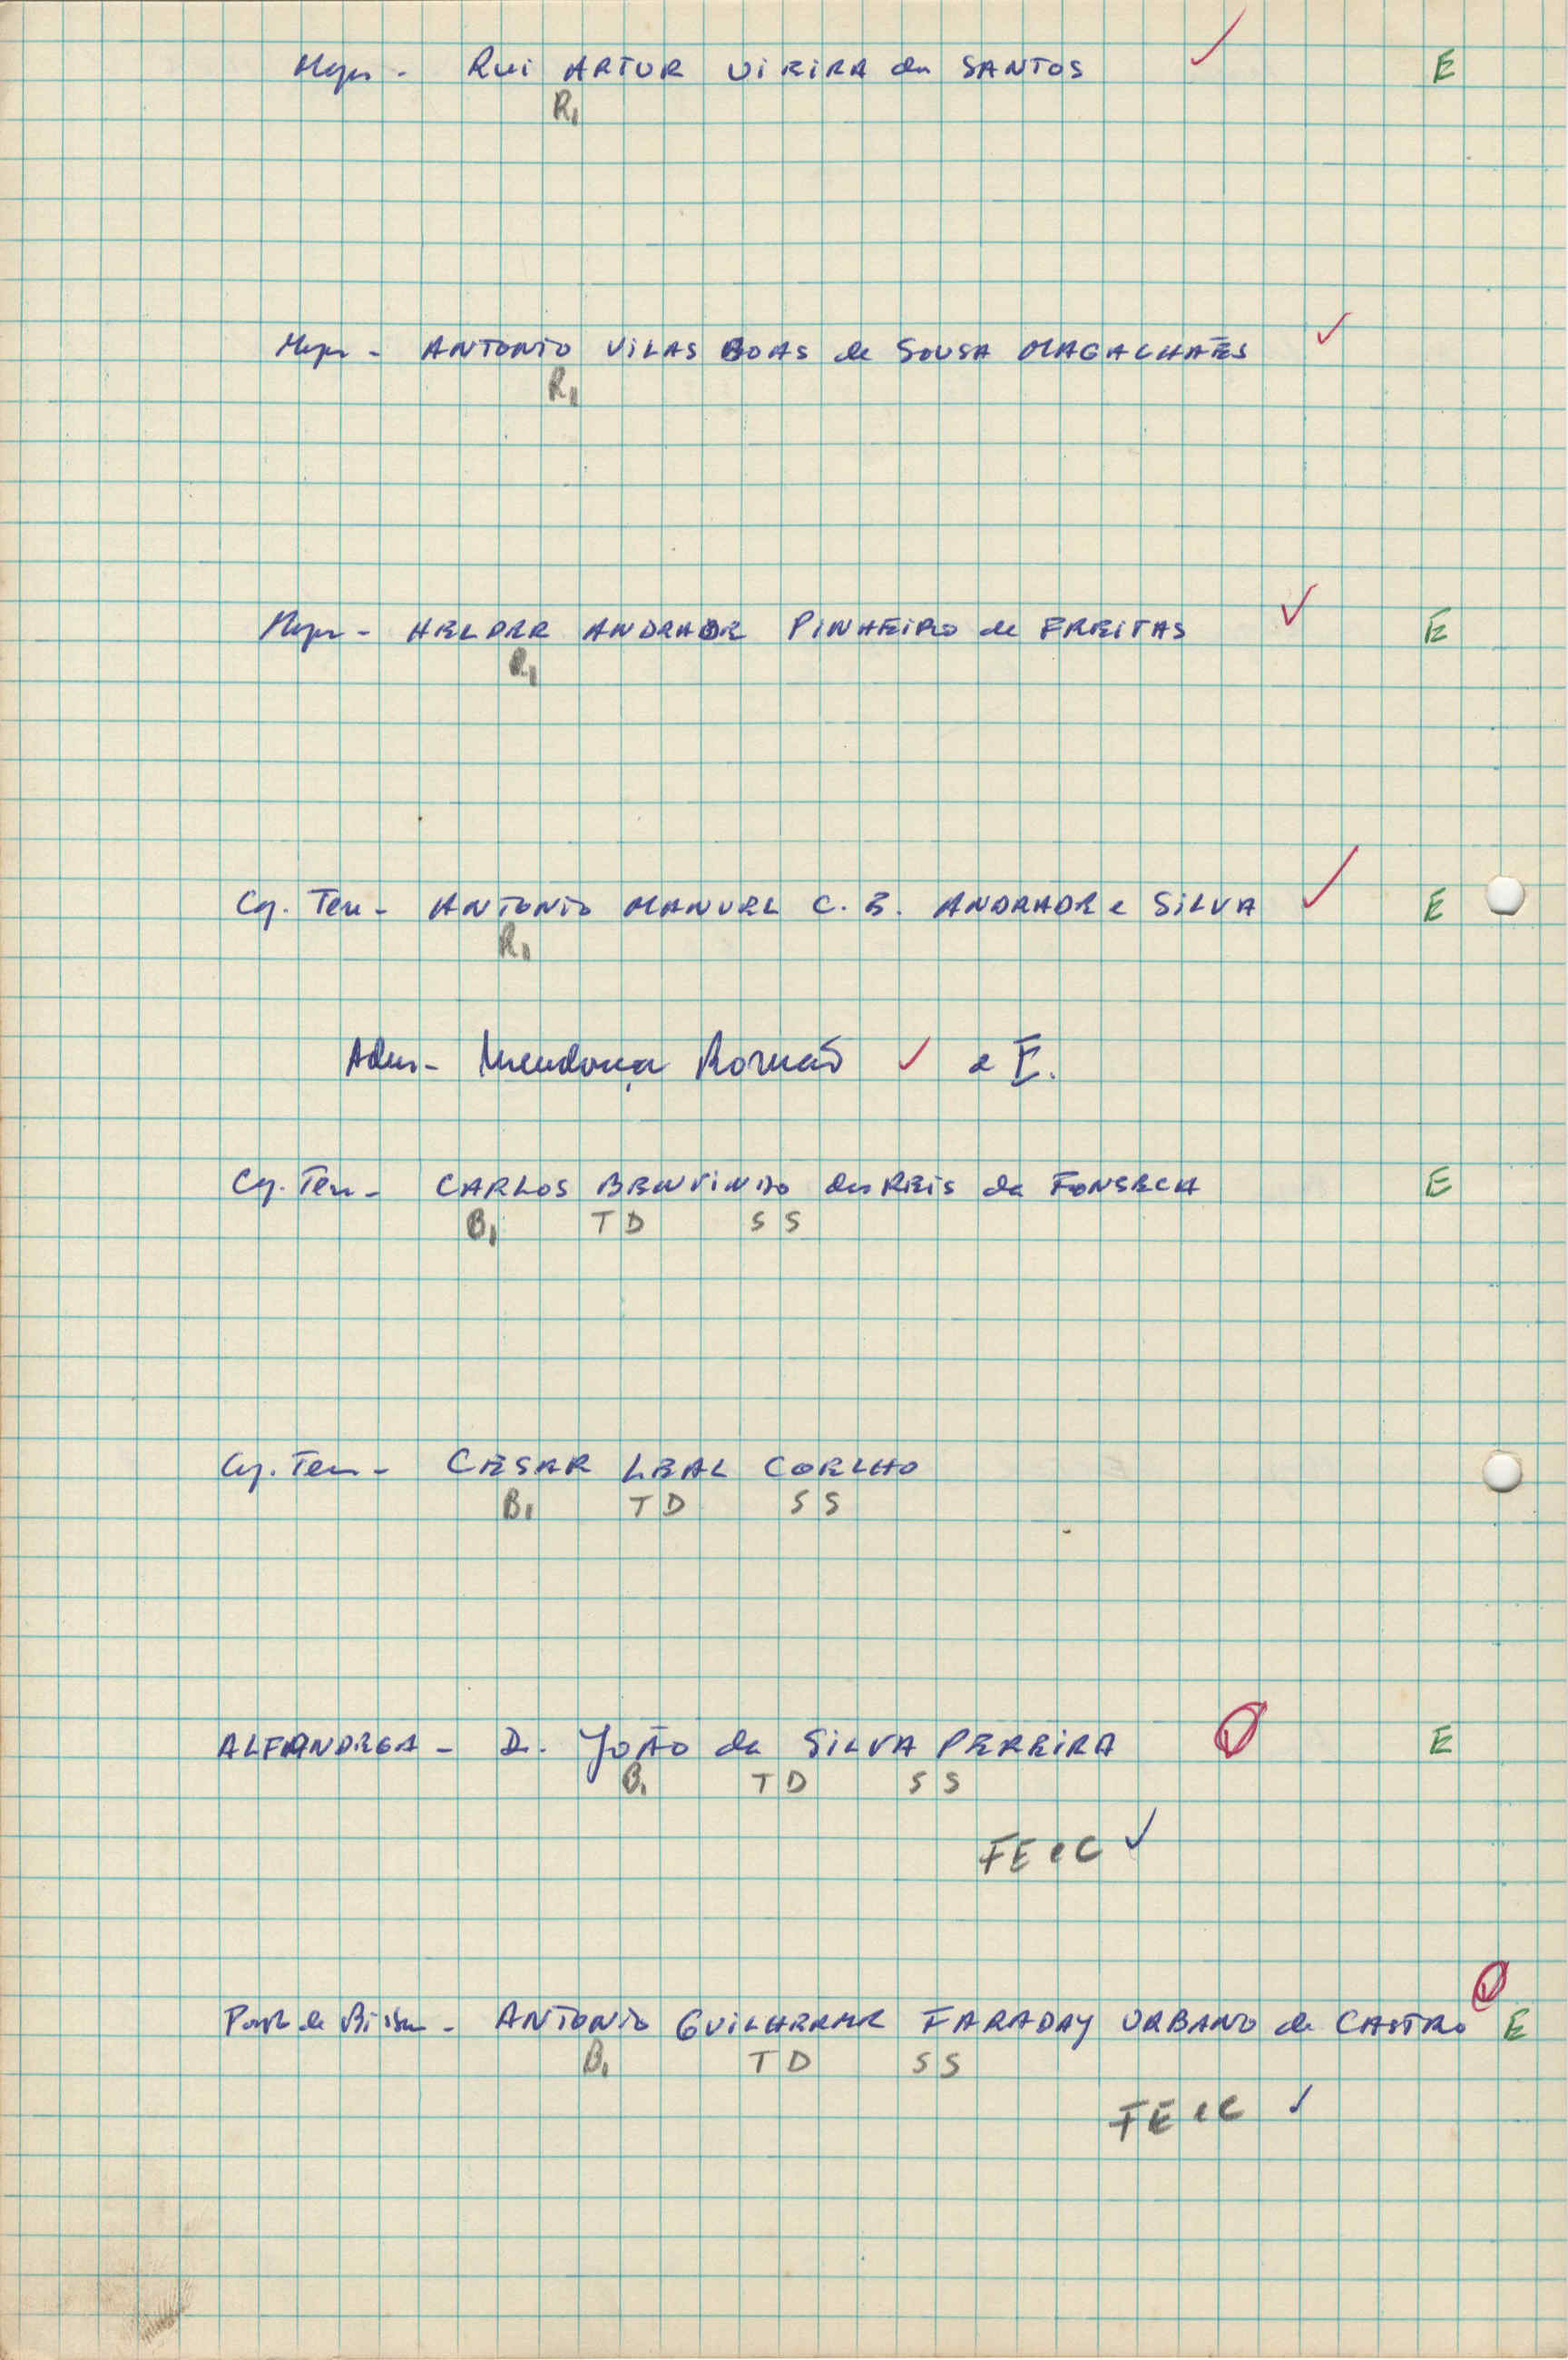 Major - Rui ARTUR VIEIRA dos SANTOS ✓ E
R1
Major - ANTONIO VILAS BOAS de SOUSA MAGALHAES ✓
R1
Major - HELDER ANDRADE PINHEIRO de FREITAS ✓ E
R1
Cap. Ten - ANTONIO MANUEL C. B. ANDRADE e SILVA ✓ E
R1
Adm - Mendonça Romão ✓ e E.
Cap. Ten - CARLOS BENVINDO dos REIS da FONSECA E
B1 TD SS
Cap. Ten - CESAR LEAL COELHO
B1 TD SS
ALFANDEGA - D. JOÃO da SILVA PEREIRA ✓ E
B1 TD SS
FE e C ✓
Porto de Bissau - ANTONIO GUILHERME FARADAY URBANO de CASTRO ✓ E
B1 TD SS
FE e C ✓